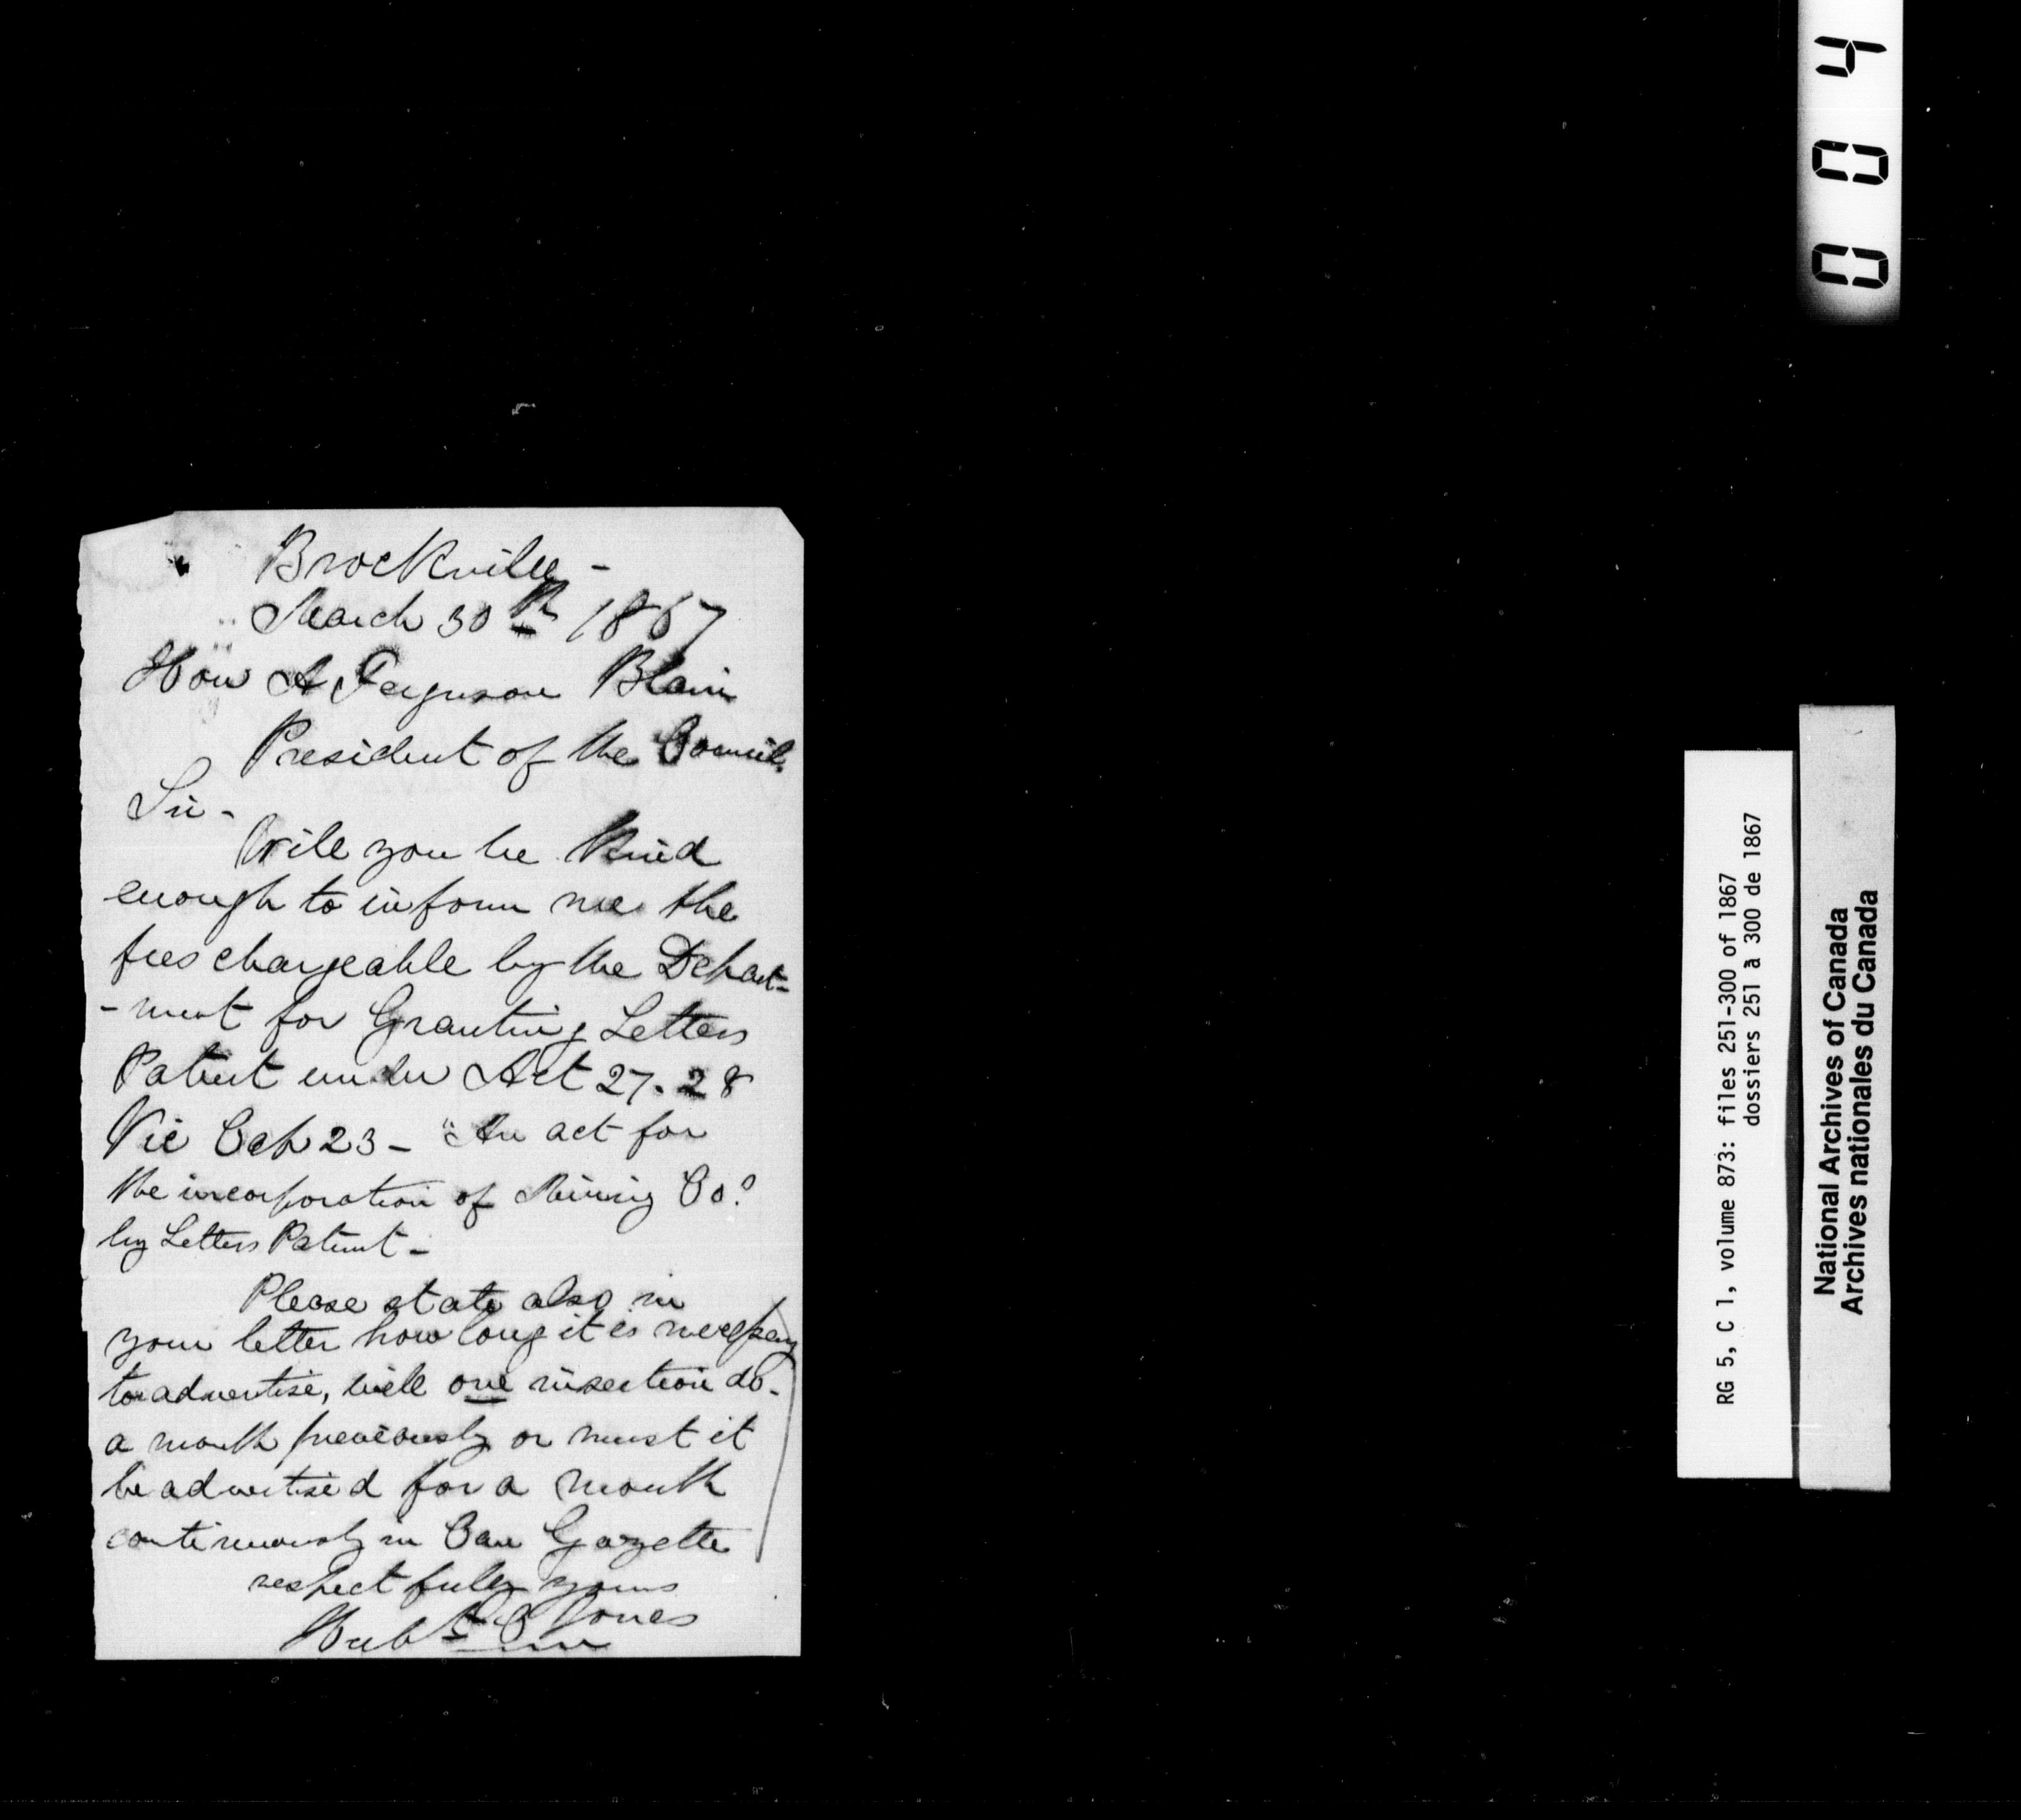 Brockville -
March 30th 1867
Hon A Ferguson Blair
President of the Council
Sir -
Will you be Kind
enough to inform me the
fees chargeable by the Depart-
-ment for Granting Letters
Patent under Act 27. 28
Vic Cap 23 - "An act for
the incorporation of Mining Cos
by Letters Patent -
Please state also in
your letter how long it is necessary
to advertise, will one insertion do -
a month previously or must it
be advertised for a month
continuously in Can Gazette
respectfully yours
Jones
004
RG 5, C 1, volume 873: files 251-300 of 1867
dossiers 251 à 300 de 1867
National Archives of Canada
Archives nationales du Canada